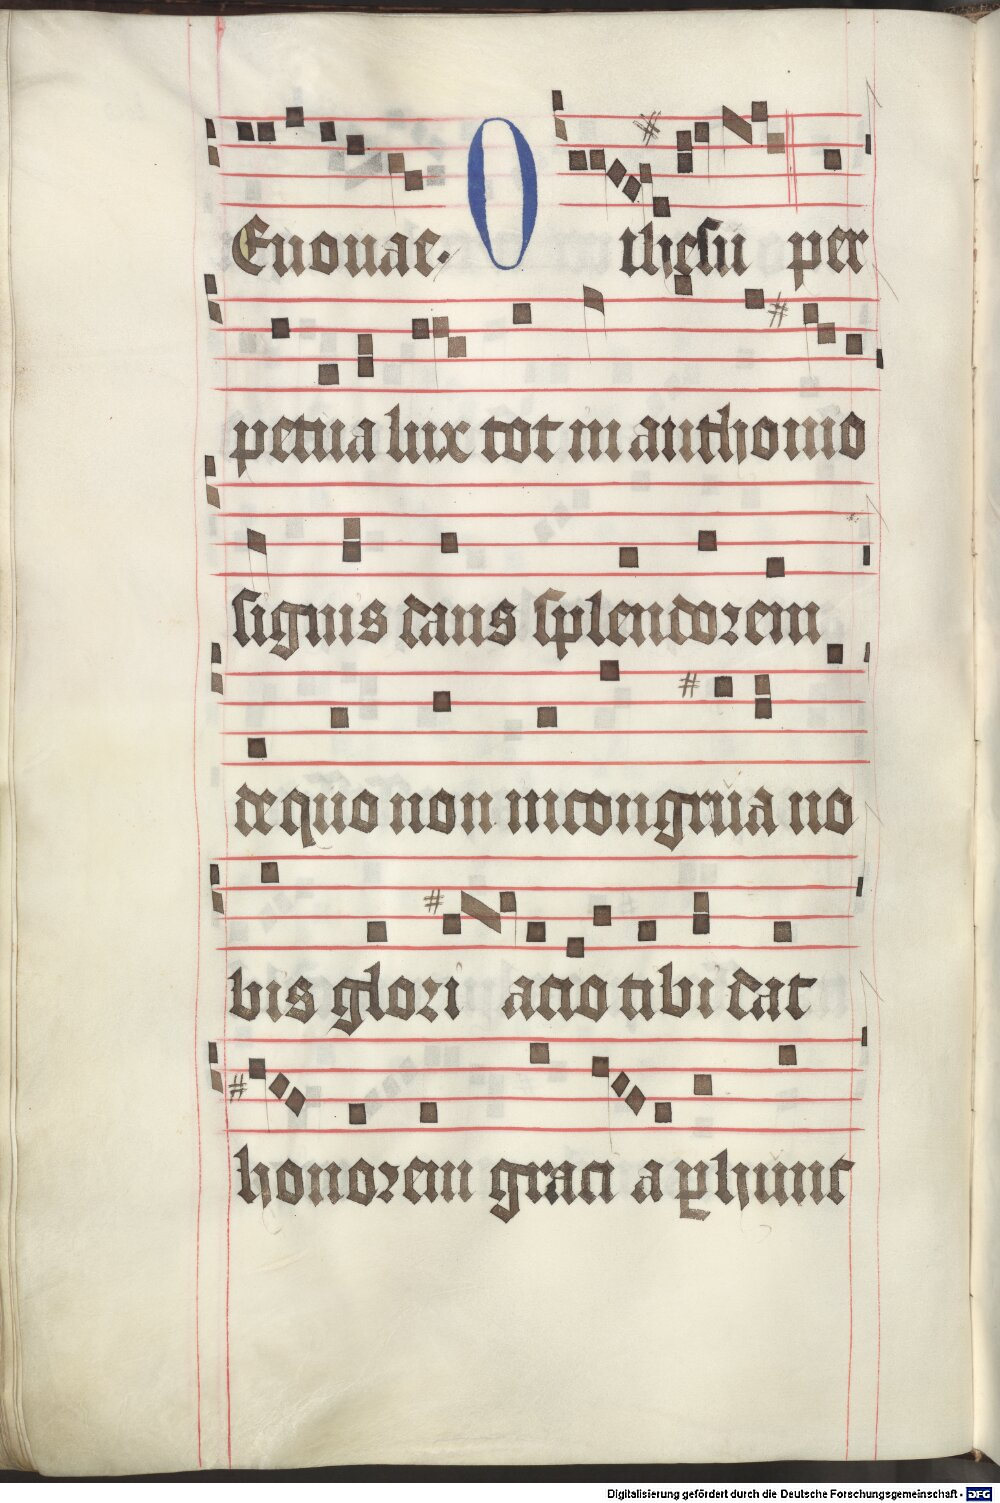 Euouae. O ihesu per
petua lux tot in anthonio
signis dans splendorem
de quo non incongrua no
bis glori a cio tibi dat
honorem graci a ꝑ hunc
Digitalisierung gefördert durch die Deutsche Forschungsgemeinschaft - DFG